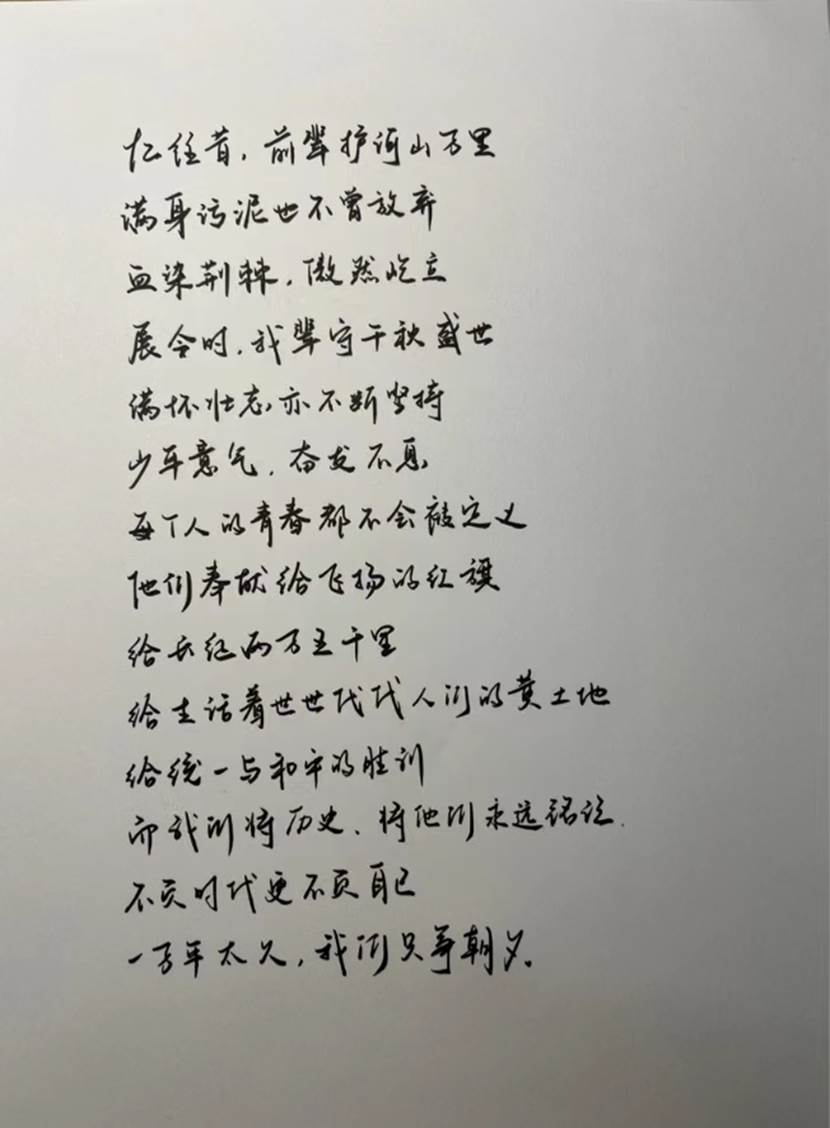 忆往昔，前辈护河山万里
满身污泥也不曾放弃
血染荆棘，傲然屹立
展今时，我辈守千秋盛世
满怀壮志，亦不断坚持
少年意气，奋发不息
每个人的青春都不会被定义
他们奉献给飞扬的红旗
给长征两万五千里
给生活着世世代代人们的黄土地
给统一与和平的胜利
而我们将历史、将他们永远铭记
不负时代更不负自己
一万年太久，我们只争朝夕。